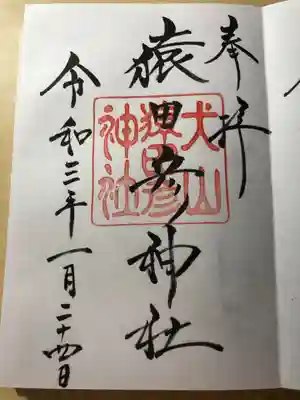 奉拝
猿田彦神社
犬山
猿田彦
神社
令和三年一月二十四日